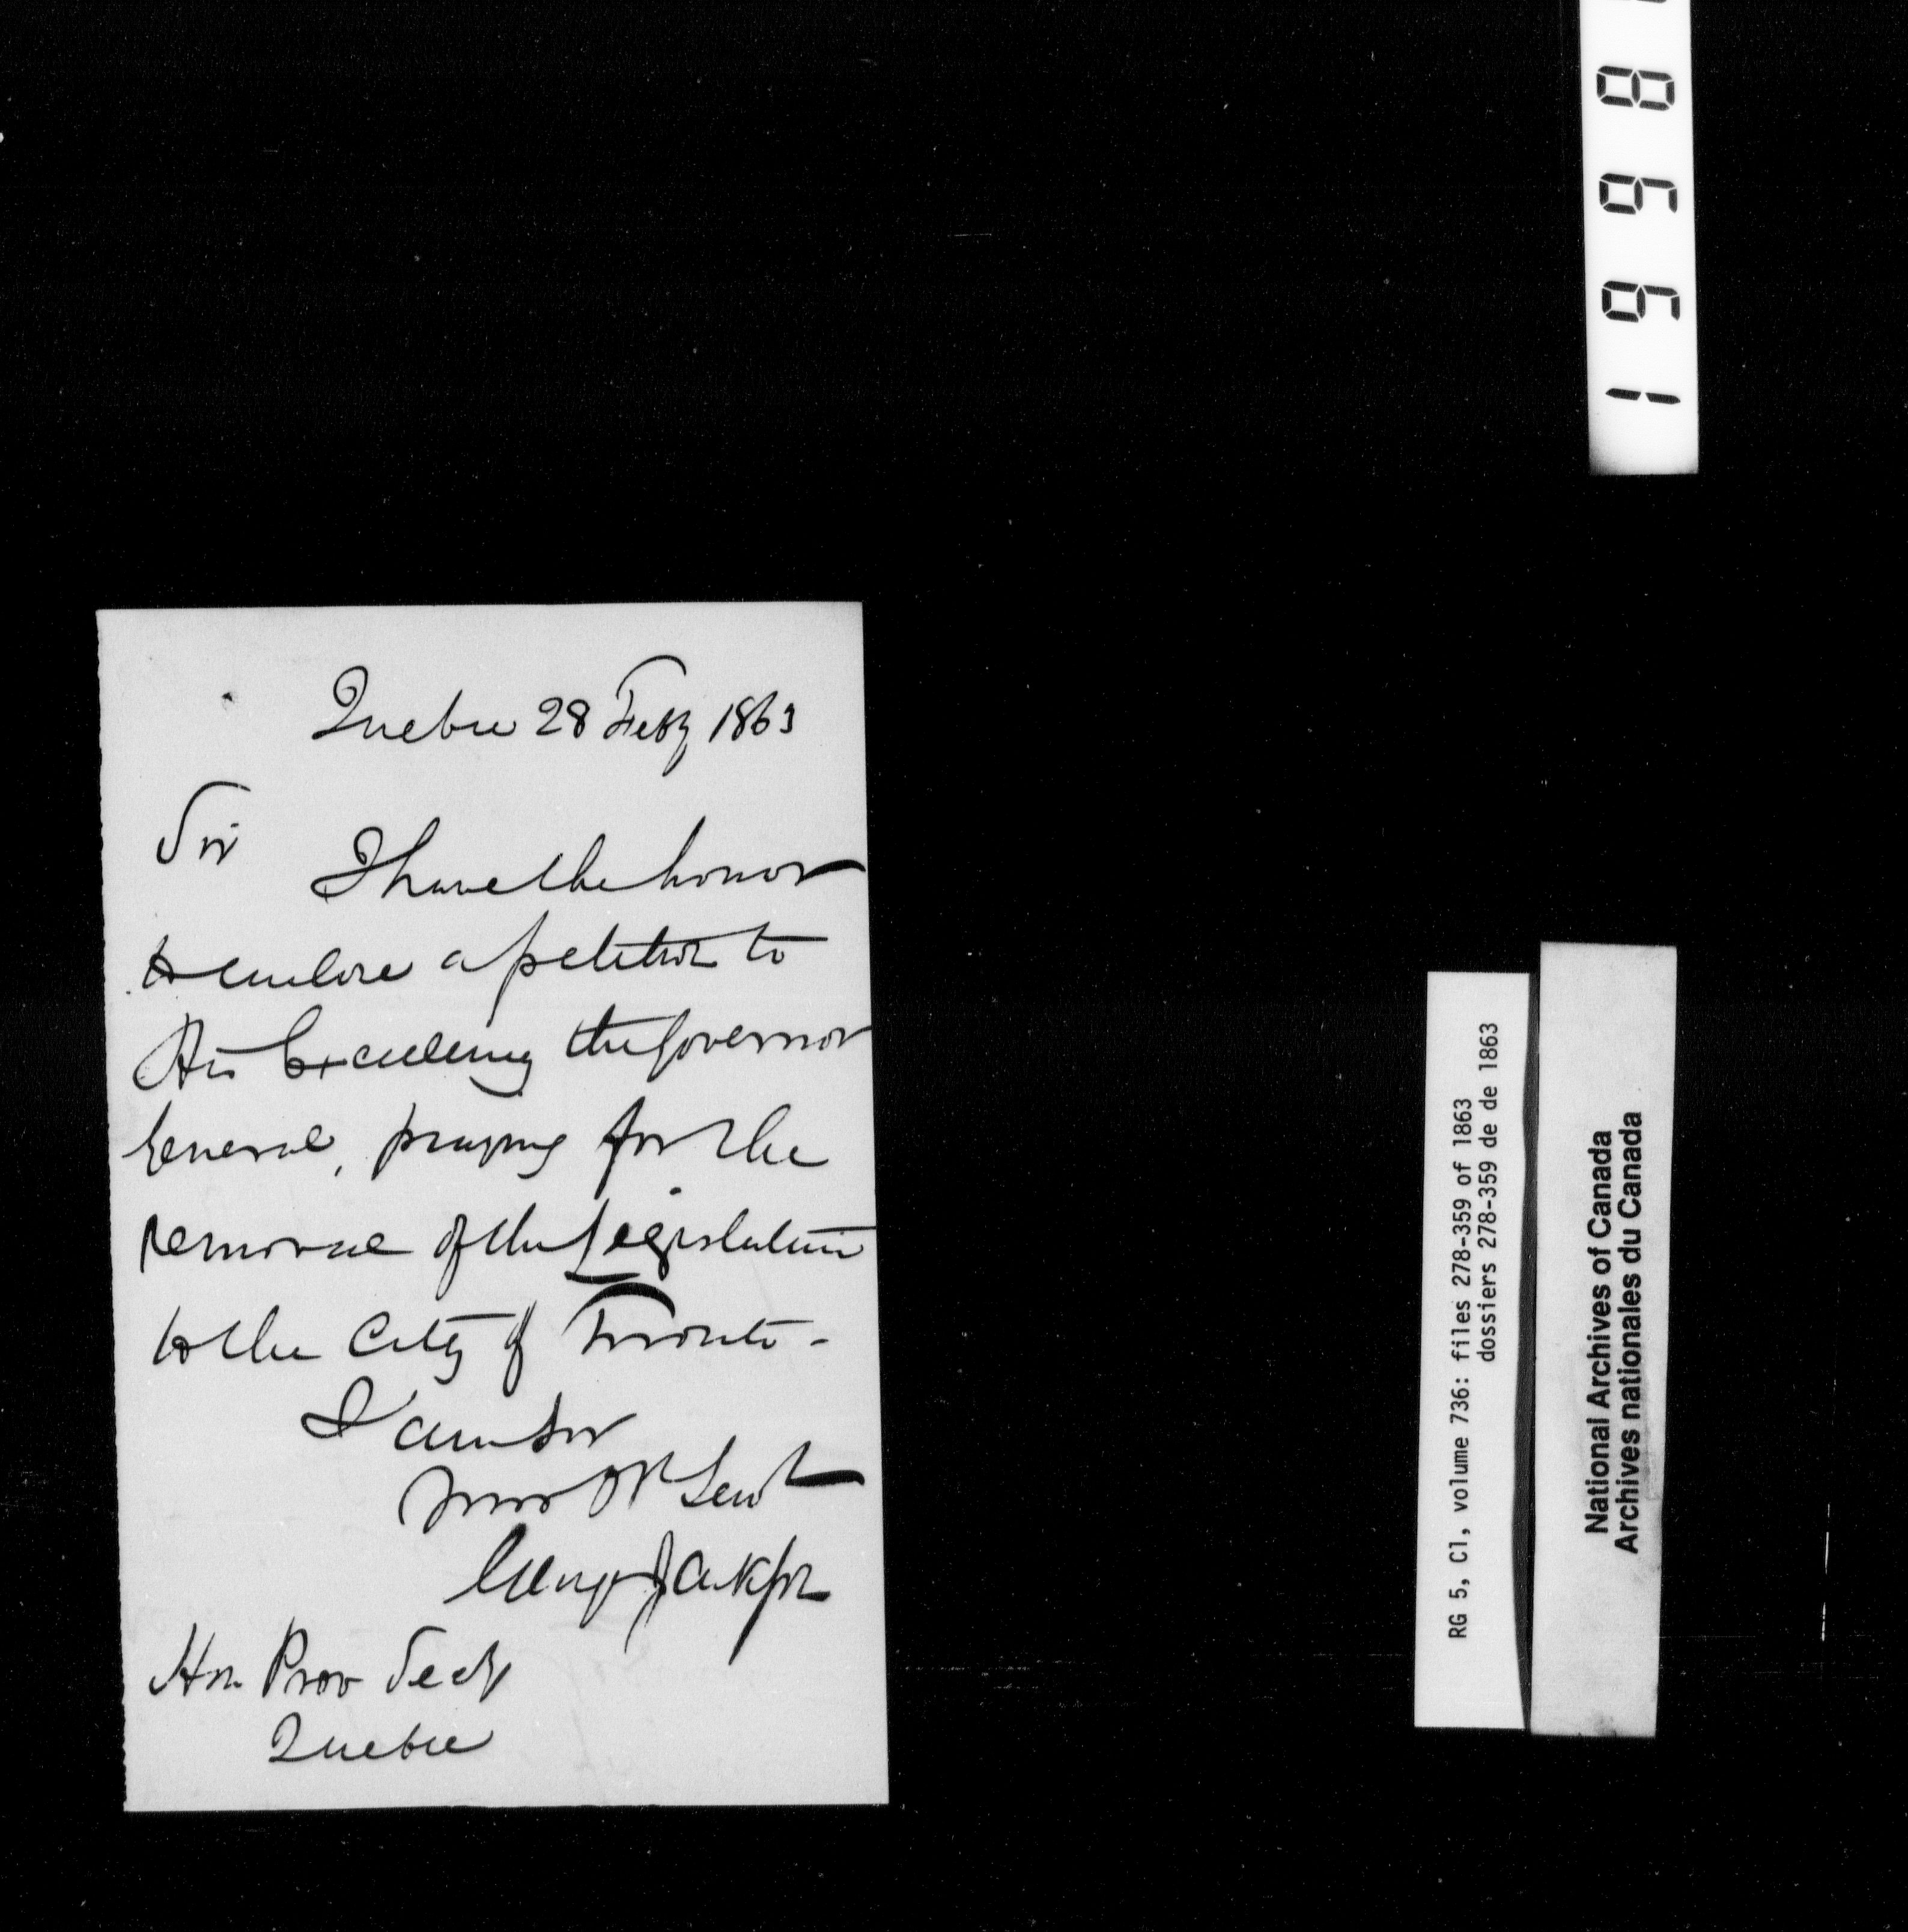 Quebec 28 Feby 1863
Sir
I have the honor
to enclose a petition to
His Excellency the Governor
General, praying for the
removal of the Legislature
to the City of Toronto -
I am Sir
Your Ob Servt
George Jackson
Hon. Prov Secy
Quebec
1998
RG 5, C1, volume 736: files 278-359 of 1863
dossiers 278-359 de de 1863
National Archives of Canada
Archives nationales du Canada